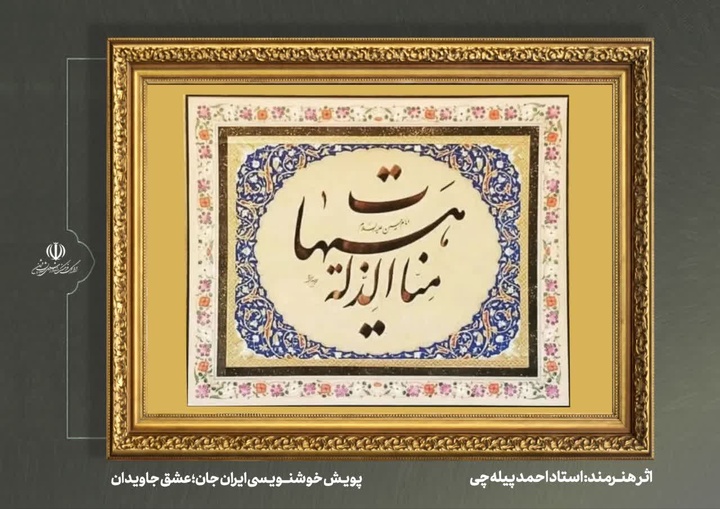 هیهات
امام حسین علیه السلام
منا الذلة
اثر هنرمند: استاد احمد پیله‌چی
پویش خوشنویسی ایران جان؛ عشق جاویدان